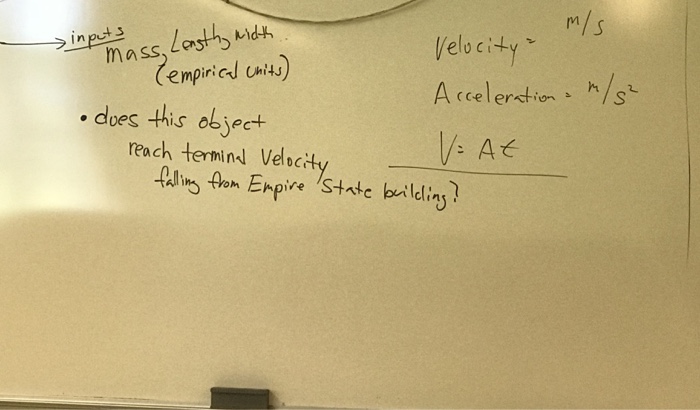 → inputs
mass, Length, width
(empirical units)
• does this object
reach terminal Velocity
falling from Empire State building?
Velocity = m/s
Acceleration = m/s²
V = At